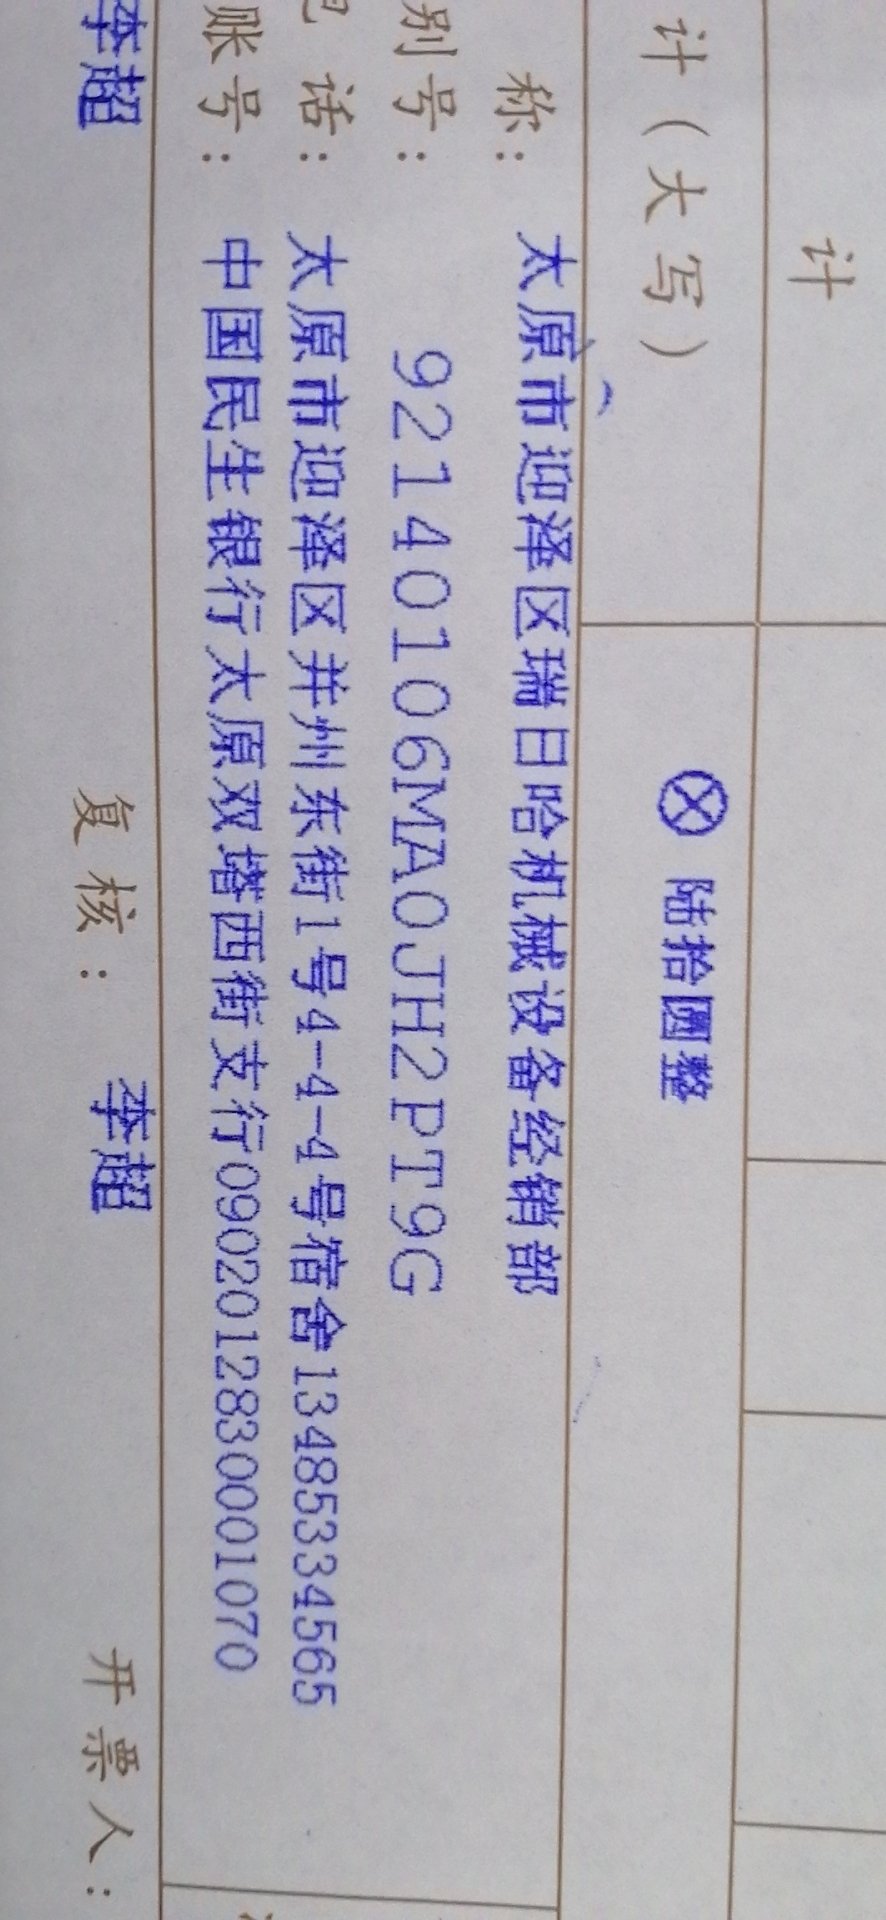 计
计（大写） ⊗ 陆拾圆整
称： 太原市迎泽区瑞日哈机械设备经销部
别号： 92140106MA0JH2PT9G
话： 太原市迎泽区并州东街1号4-4-4号宿舍13485334565
账号： 中国民生银行太原双塔西街支行0902012830001070
李超 复核： 李超 开票人：